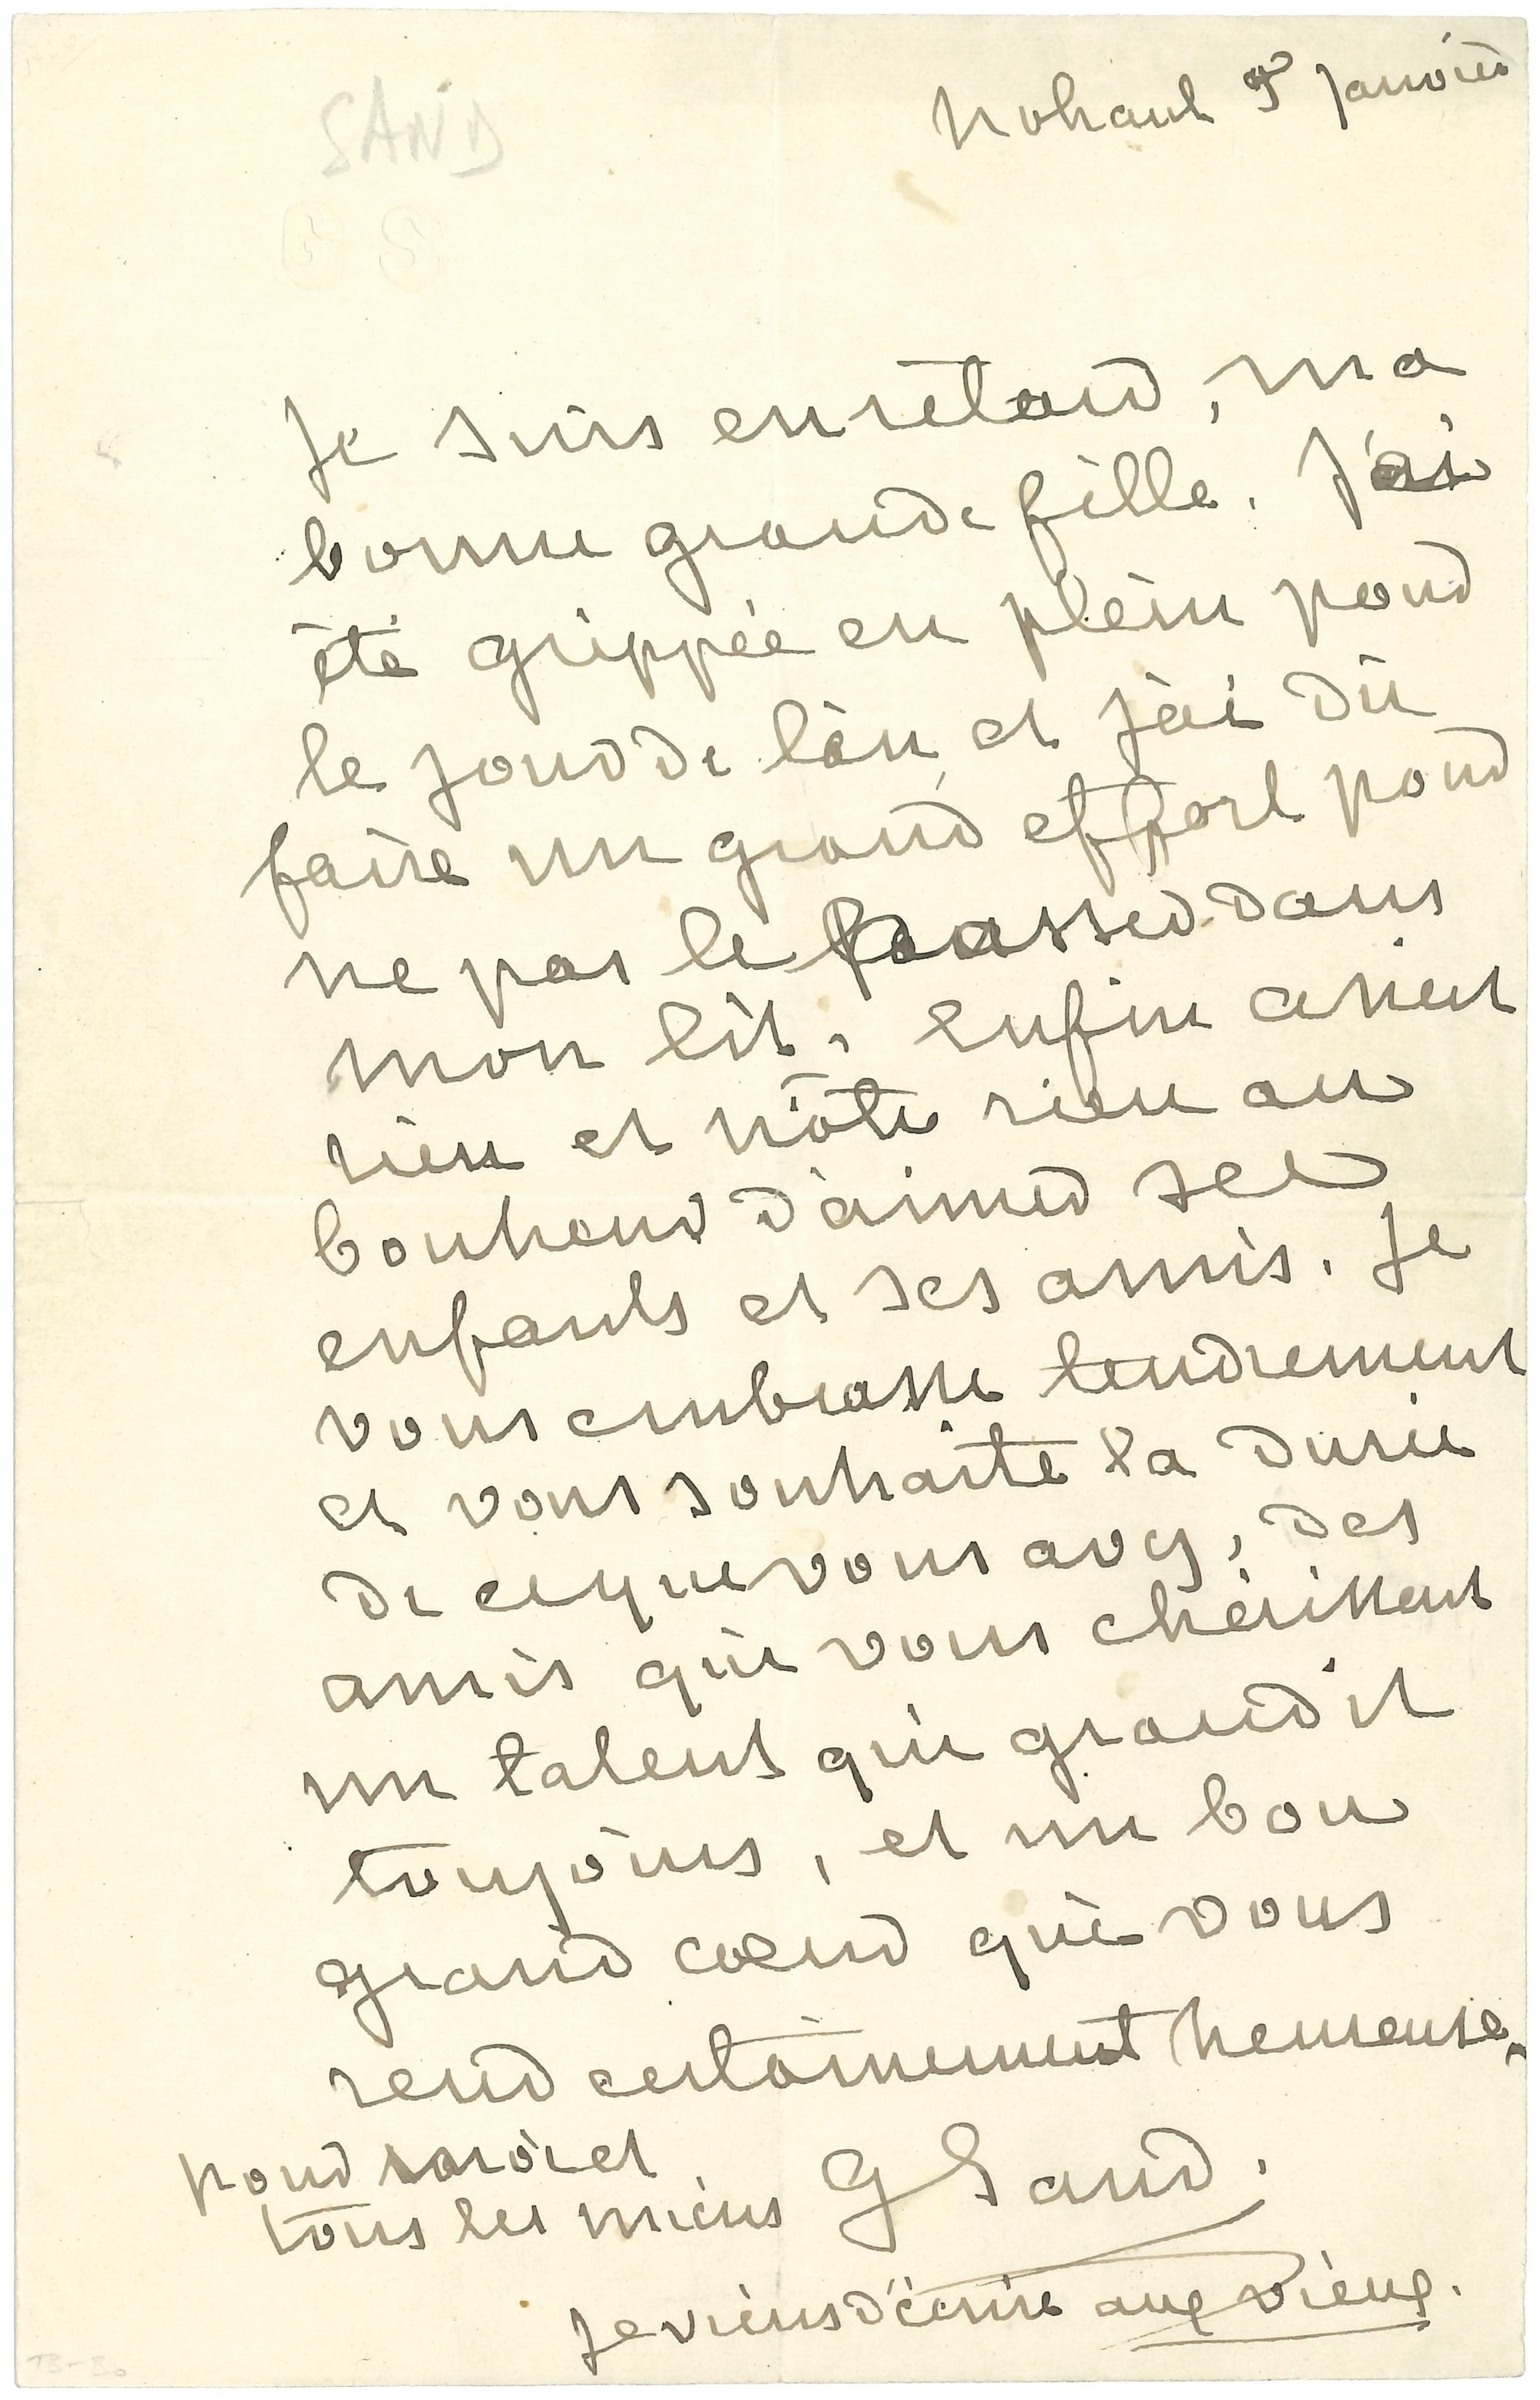 SAND
Nohant 9 Janvier
Je suis en retard, ma
bonne grande fille. J'ai
été grippée en plein pour
le jour de l'an, et j'ai dû
faire un grand effort pour
ne pas le passer dans
mon lit. enfin ce n'est
rien et n'ôte rien au
bonheur d'aimer ses
enfants et ses amis. Je
vous embrasse tendrement
et vous souhaite la durée
de ce que vous avez, des
amis qui vous chérissent
un talent qui grandit
toujours, et un bon
grand cœur qui vous
rend certainement heureuse.
pour et
tous les miens G Sand.
Je viens d'écrire aux vieux.